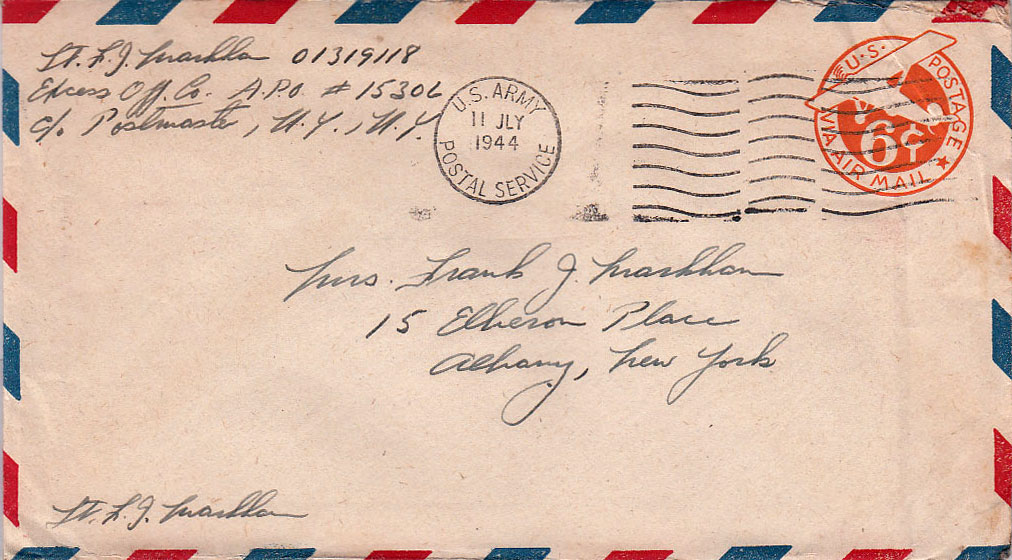 Lt. F. J. Markham 01319118
Excess Off. Co. A.P.O. # 15306
c/o Postmaster, N.Y., N.Y.
U.S. ARMY
11 JLY
1944
POSTAL SERVICE
U.S. POSTAGE
6¢
VIA AIR MAIL
Mrs. Frank J. Markham
15 Elberon Place
Albany, New York
Lt. F. J. Markham